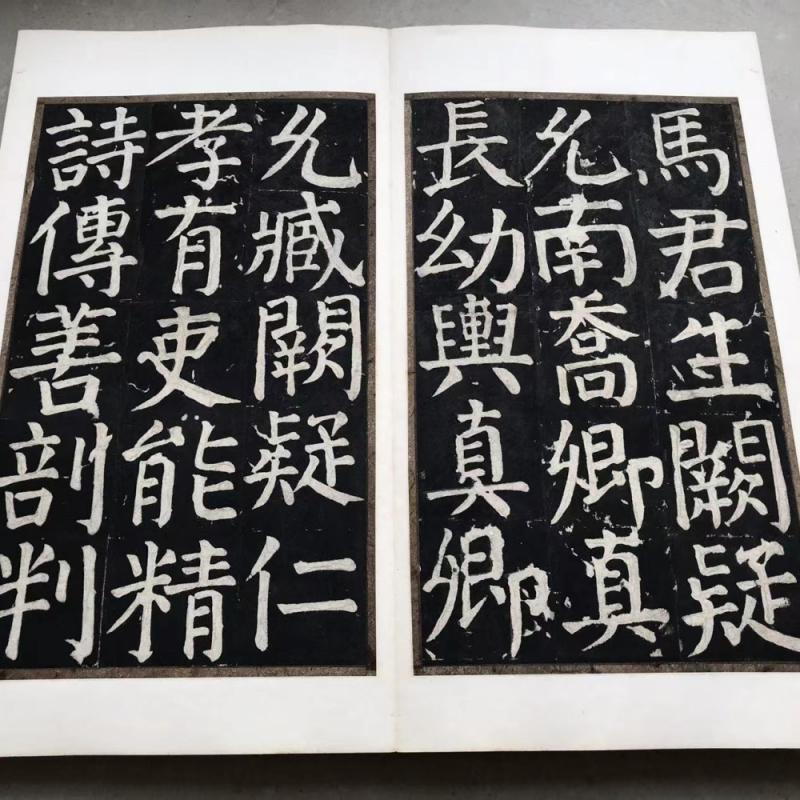 馬君生闕疑
允南喬卿真
長幼輿真卿
允臧闕疑仁
孝有吏能精
詩傳善剖判